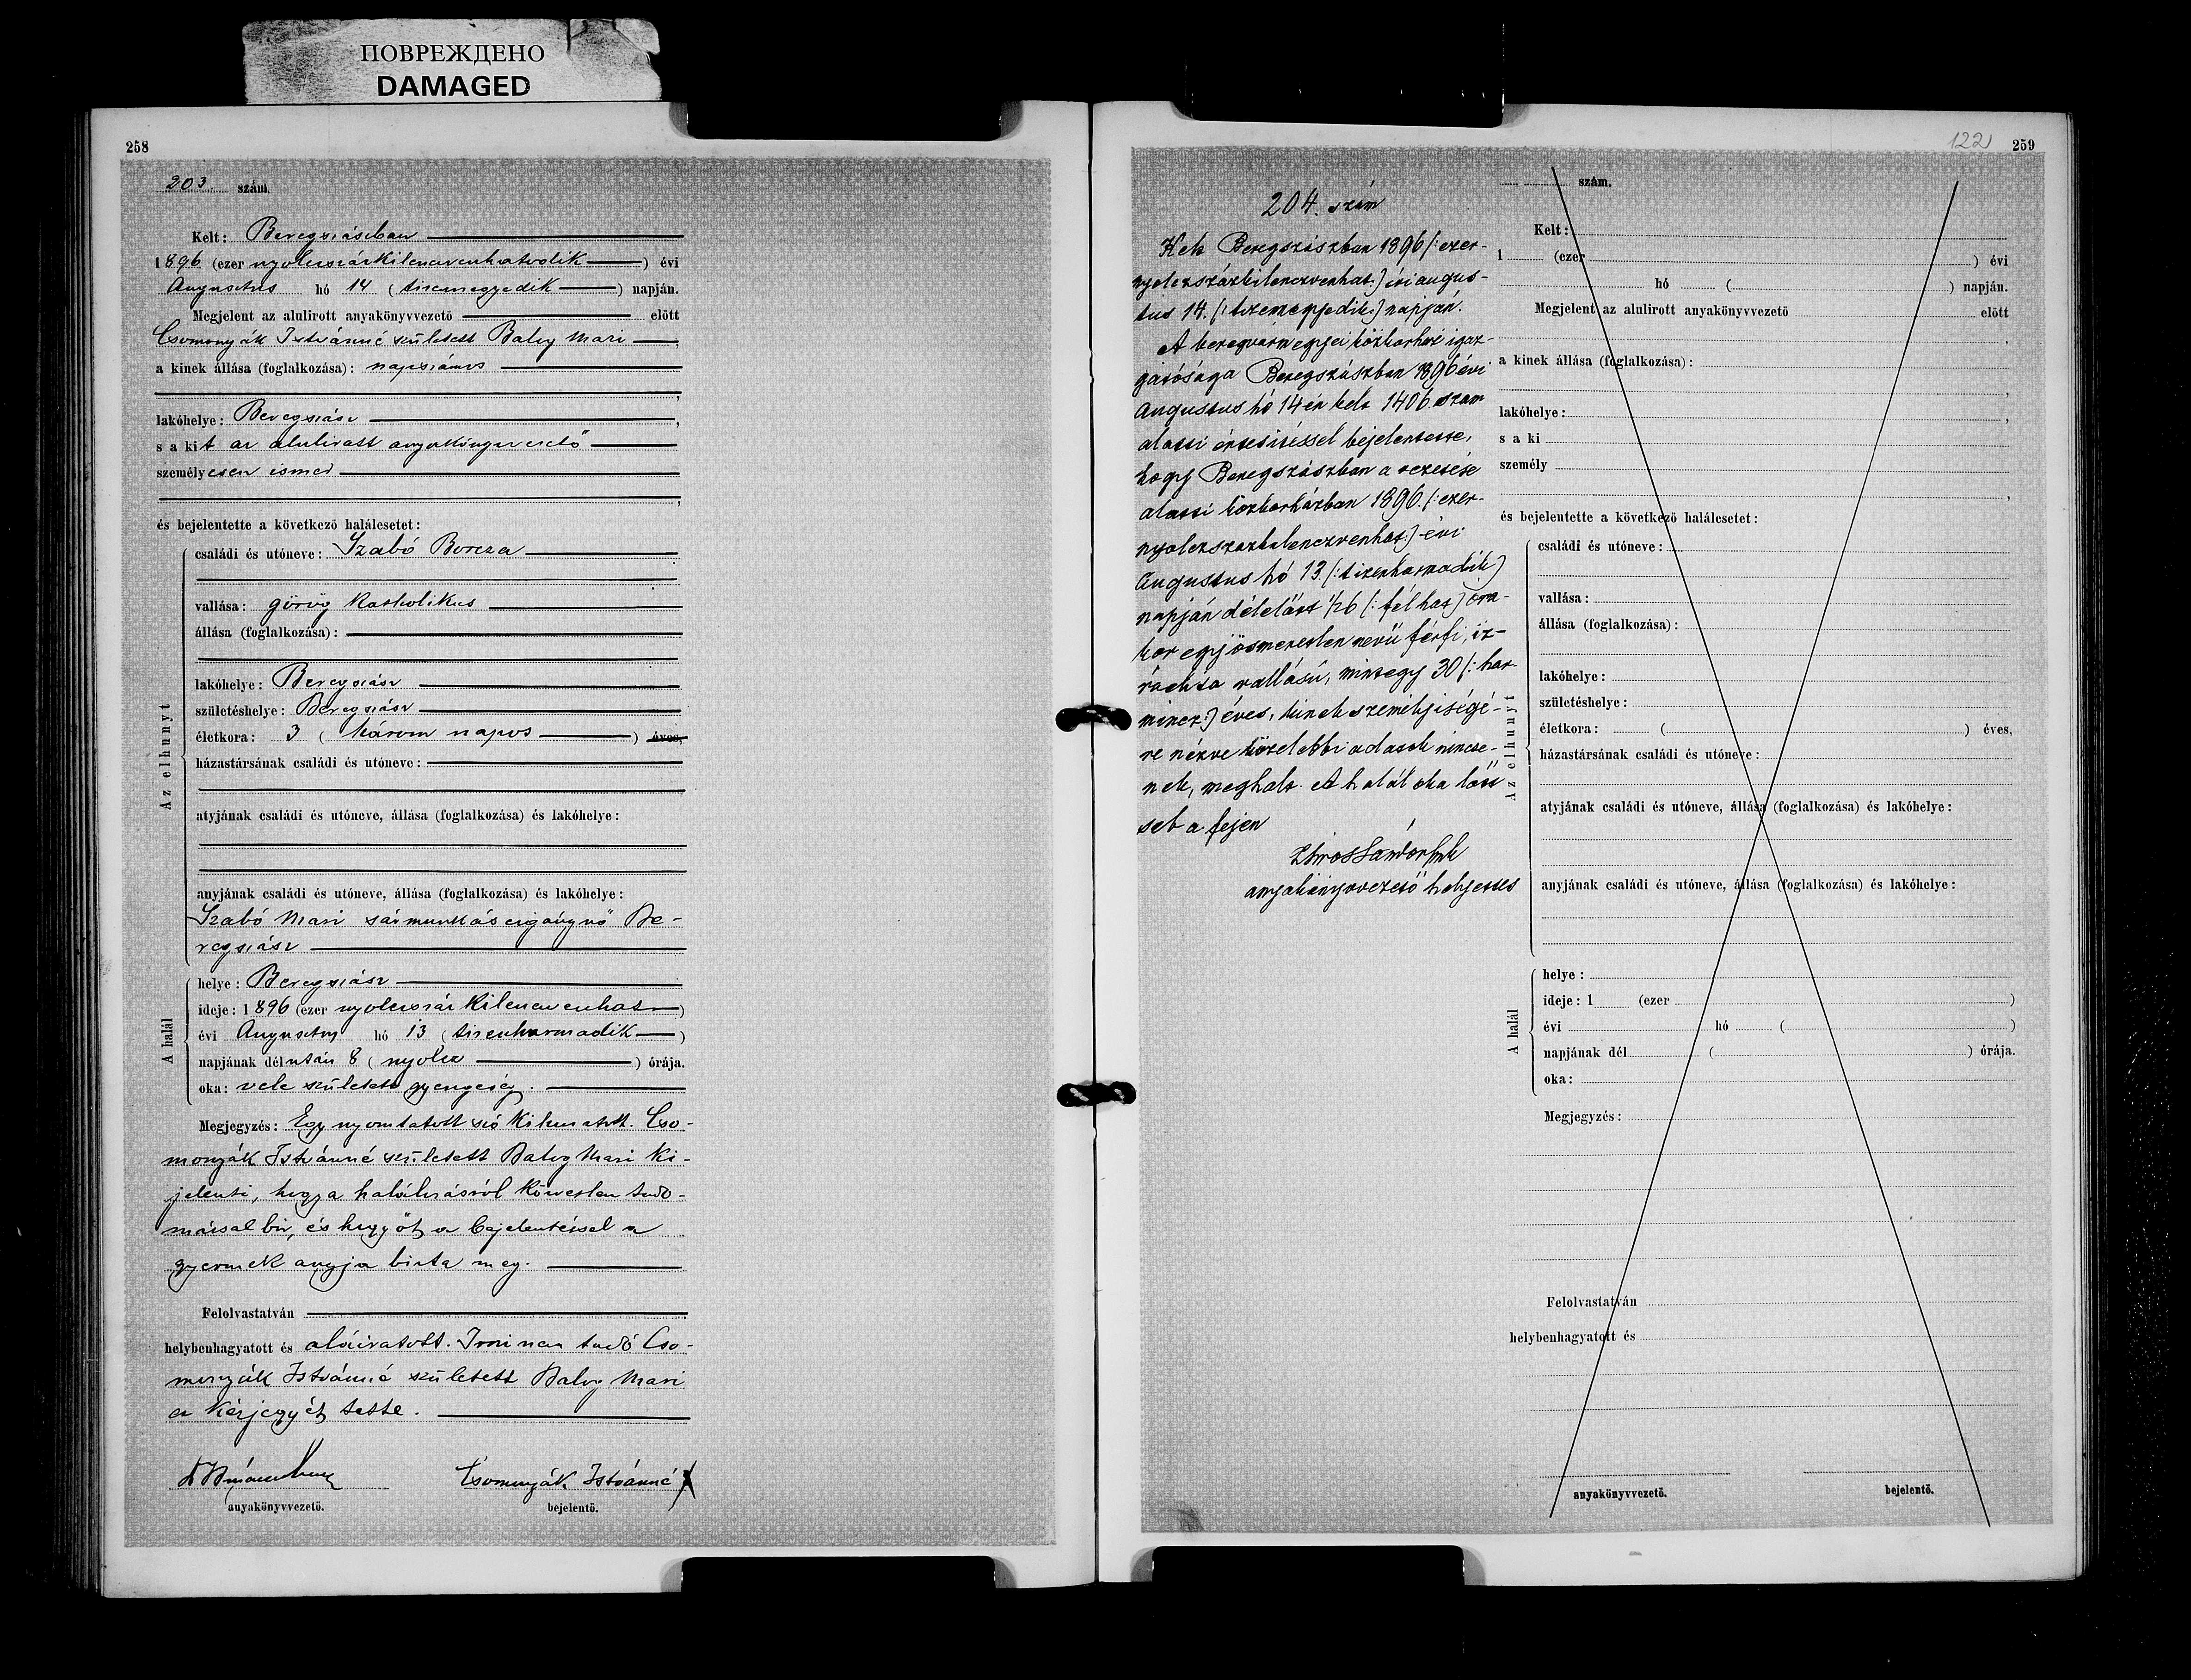 ПОВРЕЖДЕНО
DAMAGED
258
203 szám.
Kelt: Beregszászban
1896 (ezer nyolczszázkilenczvenhatodik) évi
Augusztus hó 14 (tizennegyedik) napján.
Megjelent az alulirott anyakönyvvezető előtt
Csomonyák Istvánné született Balog Mari
a kinek állása (foglalkozása): napszámos
lakóhelye: Beregszász,
s a kit az alulirott anyakönyvvezető
személyesen ismer
és bejelentette a következő halálesetet:
Az elhunyt
családi és utóneve: Szabó Borcza
vallása: görög katholikus
állása (foglalkozása):
lakóhelye: Beregszász
születéshelye: Beregszász
életkora: 3 (három napos) éves,
házastársának családi és utóneve:
atyjának családi és utóneve, állása (foglalkozása) és lakóhelye:
anyjának családi és utóneve, állása (foglalkozása) és lakóhelye:
Szabó Mari sármunkás czigánynő Be-
regszász
A halál
helye: Beregszász
ideje: 1896 (ezer nyolczszáz kilenczvenhat)
évi Augusztus hó 13 (tizenharmadik)
napjának délután 8 (nyolcz) órája.
oka: vele született gyengeség.
Megjegyzés: Egy nyomtatott szó kihuzatott. Cso-
monyák Istvánné született Balog Mari ki-
jelenti, hogy a halálozásról közvetlen tudo-
mással bir, és hogy őt a bejelentéssel a
gyermek anyja bizta meg.
Felolvastatván
helybenhagyatott és aláiratott. Irni nem tudó Cso-
monyák Istvánné született Balog Mari
a kézjegyét tette.
Csomonyák Istvánné x
anyakönyvvezető. bejelentő.
122 259
204. szám
Kelt Beregszászban 1896 (: ezer-
nyolczszázkilenczvenhat:) évi augus-
tus 14. (: tizennegyedik:) napján.
A beregvármegyei közkorházi igaz-
gatósága Beregszászban 1896 évi
Augustus hó 14én kelt 1406 szám
alatti értesitéssel bejelentette,
hogy Beregszászban a vezetése
alatti közkorházban 1896. (: ezer-
nyolczszázkilenczvenhat:) évi
Augustus hó 13. (: tizenharmadik)
napján délelőtt 1/26 (: fél hat) óra-
kor egy ösmeretlen nevü férfi, iz-
raelita vallású, mintegy 30 (: har-
mincz:) éves, kinek személyiségé-
re nézve közelebbi adatok nincse-
nek, meghalt. A halál oka lőtt
seb a fejen
anyakönyvvezető helyettes
szám.
Kelt:
1 (ezer ) évi
hó ( ) napján.
Megjelent az alulirott anyakönyvvezető előtt
a kinek állása (foglalkozása):
lakóhelye:
s a ki
személy
és bejelentette a következő halálesetet:
Az elhunyt
családi és utóneve:
vallása:
állása (foglalkozása):
lakóhelye:
születéshelye:
életkora: ( ) éves,
házastársának családi és utóneve:
atyjának családi és utóneve, állása (foglalkozása) és lakóhelye:
anyjának családi és utóneve, állása (foglalkozása) és lakóhelye:
A halál
helye:
ideje: 1 (ezer )
évi hó ( )
napjának dél ( ) órája.
oka:
Megjegyzés:
Felolvastatván
helybenhagyatott és
anyakönyvvezető. bejelentő.